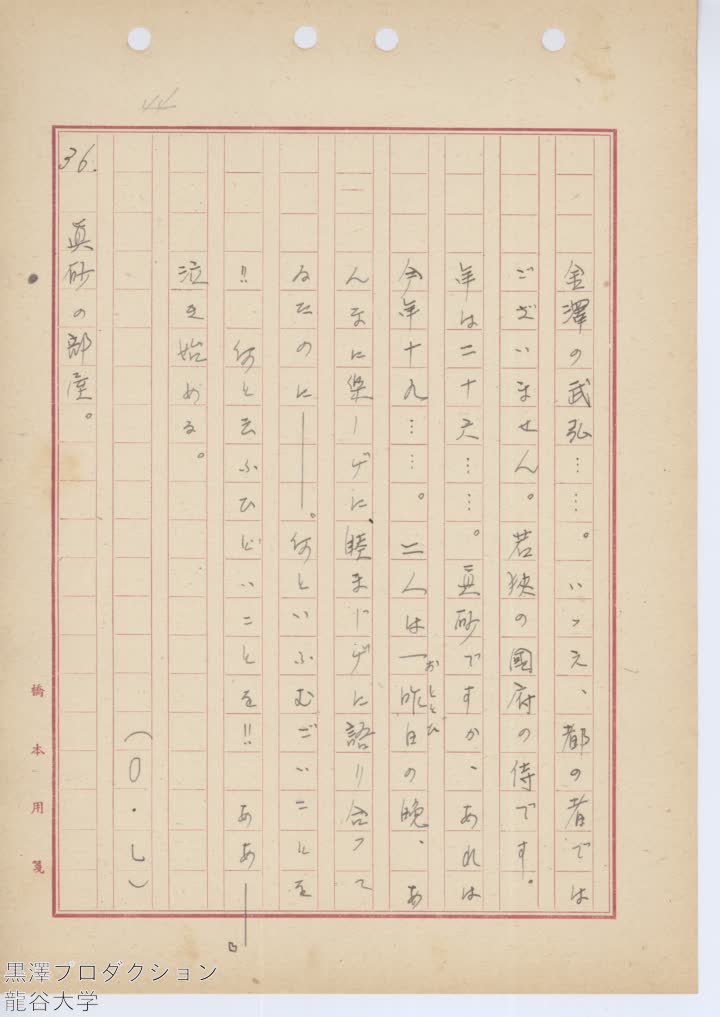 金澤の武弘……。いゝえ、都の者では
ございません。若狹の國府の侍です。
年は二十六……。眞砂ですか、あれは
今年十九……。二人は一昨日の晩、あ
おとゝひ
んなに樂しげに、睦まじげに語り合つて
ゐたのに――。何といふむごいことを
!! 何と云ふひどいことを!! ああ――。
泣き始める。
(O・L)
36. 眞砂の部屋。
44
橋本用箋
黒澤プロダクション
龍谷大学